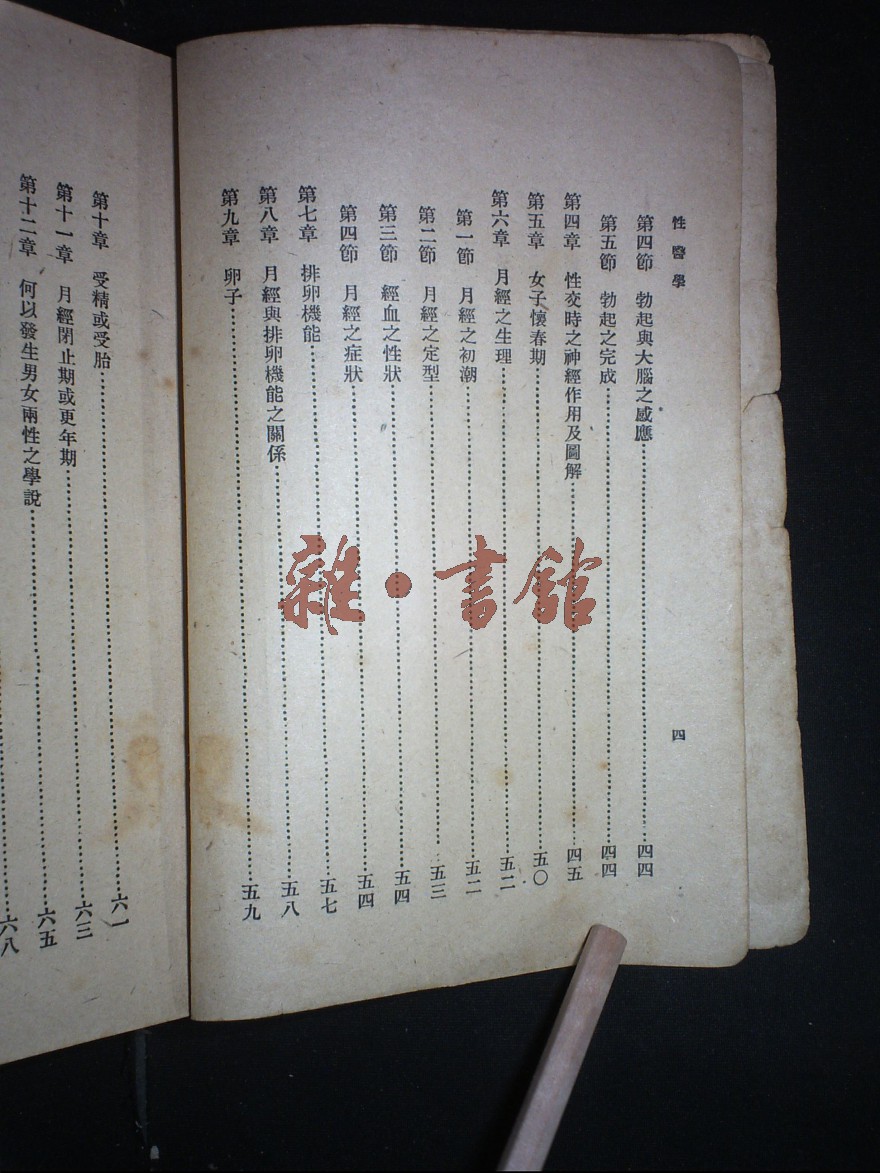 性醫學
四
第四節　勃起與大腦之感應……四四
第五節　勃起之完成……四四
第四章　性交時之神經作用及圖解……四五
第五章　女子懷春期……五〇
第六章　月經之生理……五二
第一節　月經之初潮……五二
第二節　月經之定型……五三
第三節　經血之性狀……五四
第四節　月經之症狀……五四
第七章　排卵機能……五七
第八章　月經與排卵機能之關係……五八
第九章　卵子……五九
第十章　受精或受胎……六一
第十一章　月經閉止期或更年期……六三
第十二章　何以發生男女兩性之學說……六五
六八
雜·書館